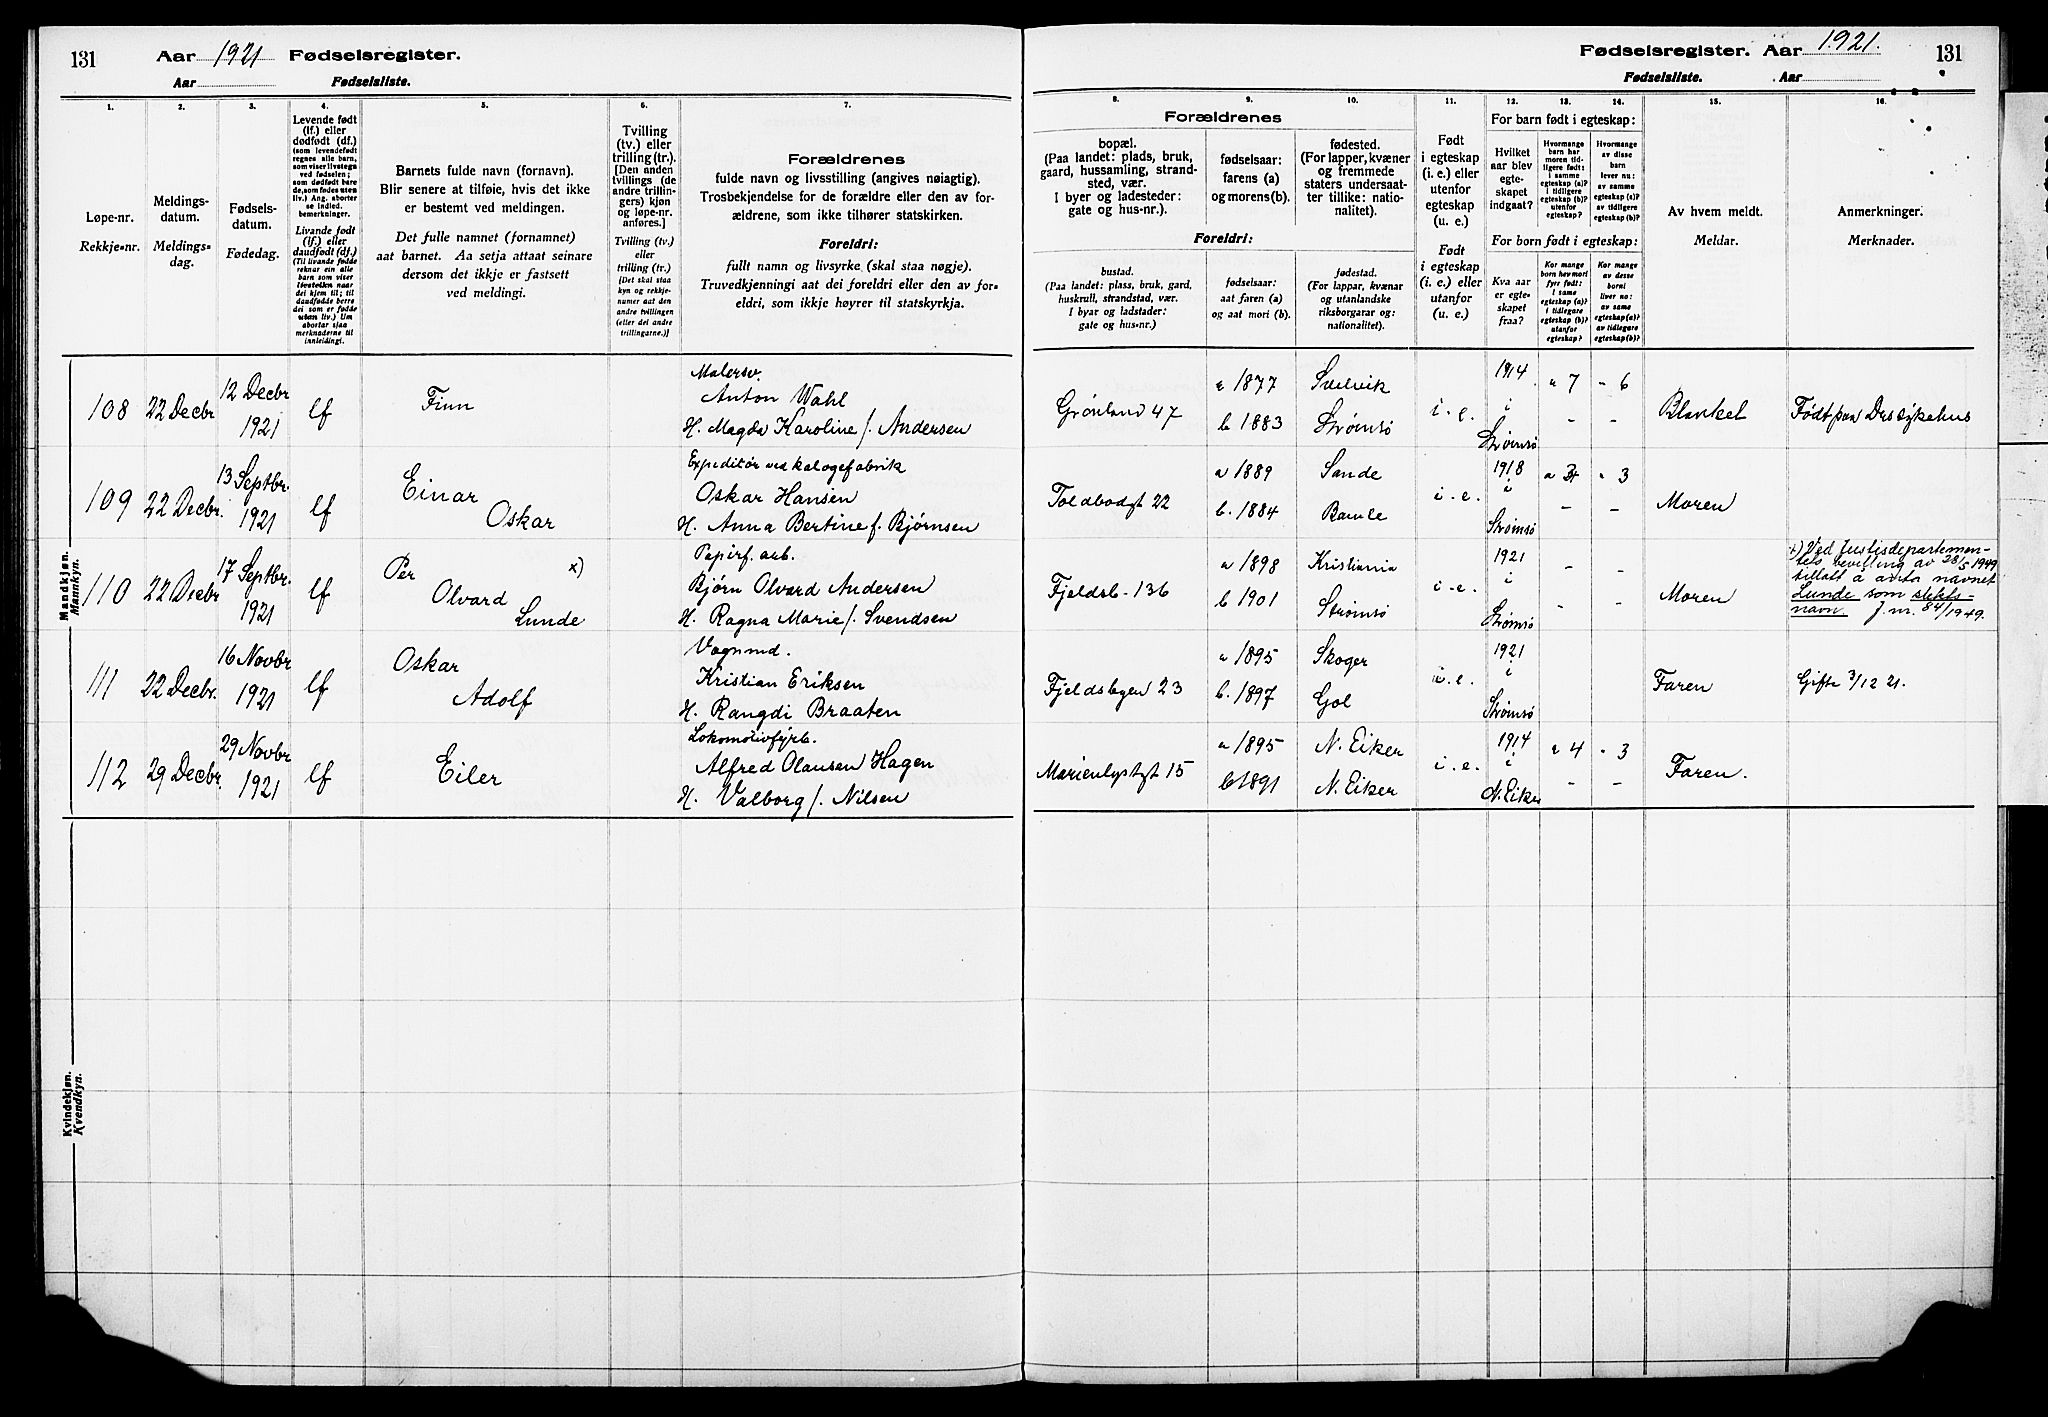 131 Aar 1921 Fødselsregister.
Aar Fødselsliste.
1.
Løpe-nr.
Rekkje-nr.
2.
Meldings-
datum.
Meldings-
dag.
3.
Fødsels-
datum.
Fødedag.
4.
Levende født
(lf.) eller
dødfødt (df.)
(som levendefødt
regnes alle barn,
som viser livstegn
ved fødselen;
som dødfødt bare
de, som fødes uten
liv.) Ang. aborter
se indled.
bemerkninger.
Livande født
(lf.) eller
daudfødt (df.)
(Til livande fødde
reknar ein alle
barn som viser
livsteikn naar
dei kjem til; til
daudfødde berre
dei som er fødde
utan liv.) Um
abortar sjaa
merknaderne til
innleidingi.
5.
Barnets fulde navn (fornavn).
Blir senere at tilføie, hvis det ikke
er bestemt ved meldingen.
Det fulle namnet (fornamnet)
aat barnet. Aa setja attaat seinare
dersom det ikkje er fastsett
ved meldingi.
6.
Tvilling
(tv.) eller
trilling (tr.).
[Den anden
tvillings (de
andre trillin-
gers) kjøn
og løpe-nr.
anføres.]
Tvilling (tv.)
eller
trilling (tr.)
[Det skal staa
kyn og rekkje-
numer aat den
andre tvillingen
(eller dei andre
trillingarne.)]
7.
Forældrenes
fulde navn og livsstilling (angives nøiagtig).
Trosbekjendelse for de forældre eller den av for-
ældrene, som ikke tilhører statskirken.
Foreldri:
fullt namn og livsyrke (skal staa nøgje).
Truvedkjenningi aat dei foreldri eller den av for-
eldri, som ikkje høyrer til statskyrkja.
Mandkjøn.
Mannkyn.
108 22 Decbr. 12 Decbr 1921 lf Finn
Malersv.
Anton Wahl
H. Magda Karoline f. Andersen
109 22 Decbr. 13 Septbr. 1921 lf Einar
Oskar
Expeditør ved
Oskar Hansen
H. Anna Bertine f. Bjørnsen
110 22 Decbr 17 Septbr. 1921 lf Per x)
Olvard
Lunde
Papirf. arb.
Bjørn Olvard Andersen
H. Ragna Marie f. Svendsen
111 22 Decbr. 16 Novbr 1921 lf Oskar
Adolf
Vognmd.
Kristian Eriksen
H. Rangdi Braaten
112 29 Decbr. 29 Novbr 1921 lf Eiler
Lokomotivfyrb.
Alfred Olausen Hagen
H. Valborg f. Nilsen
Kvindekjøn.
Kvendkyn.
Fødselsregister. Aar 1921. 131
Fødselsliste. Aar
8.
Forældrenes
bopæl.
(Paa landet: plads, bruk,
gaard, hussamling, strand-
sted, vær.
I byer og ladesteder:
gate og hus-nr.).
Foreldri:
bustad.
(Paa landet: plass, bruk, gard,
huskrull, strandstad, vær.
I byar og ladstader:
gate og hus-nr.)
9.
fødselsaar:
farens (a)
og morens (b).
fødselsaar:
aat faren (a)
og aat mori (b).
10.
fødested.
(For lapper, kvæner
og fremmede
staters undersaat-
ter tillike: natio-
nalitet).
fødestad.
(For lappar, kvænar
og utanlandske
riksborgarar og:
nationalitet).
11.
Født
i egteskap
(i. e.) eller
utenfor
egteskap
(u. e.)
Født
i egteskap
(i. e.) eller
utanfor
(u. e.)
12.
For barn født i egteskap:
Hvilket
aar blev
egte-
skapet
indgaat?
For born født i egteskap:
Kva aar
er egte-
skapet
fraa?
13.
Hvormange
barn har
moren tid-
ligere født:
i samme
egteskap (a)?
i tidligere
egteskap (b)?
utenfor
egteskap?
Kor mange
born hev mori
fyrr født:
i same
egteskap (a)?
i tidlegare
egteskap (b)?
utanfor
egteskap?
14.
Hvormange
av disse
barn
lever nu:
av samme
egteskap (a)?
av tidligere
egteskap (b)?
Kor mange
av desse
borni
liver no:
av same
egteskap (a)?
av tidlegare
egteskap (b)?
15.
Av hvem meldt.
Meldar.
16.
Anmerkninger.
Merknader.
Grønland 47 a 1877 Svelvik i. e. 1914 a 7 - 6
b 1883 Strømsø i Strømsø - -
Født paa Drs sykehus
Toldbodgt 22 a 1889 Sande i. e. 1918 a - 3
b. 1884 Bamle i Strømsø - - Moren
Fjeldsb - 136 a 1898 Kristiania i. e. 1921 - -
b 1901 Strømsø i Strømsø - - Moren
x) Ved Justisdepartemen-
tets bevilling av 28/5 1949
tillatt å anta navnet
Lunde som slekts-
navn. J. nr. 84/1949.
Fjeldsbyen 23 a 1895 Skoger i. e. 1921
b. 1897 Gol i Strømsø Faren Gifte 3/12 21.
Marienlystgt 15 a 1895 N. Eiker i. e. 1914 a 4 - 3
b 1891 N. Eiker i N. Eiker - - Faren.